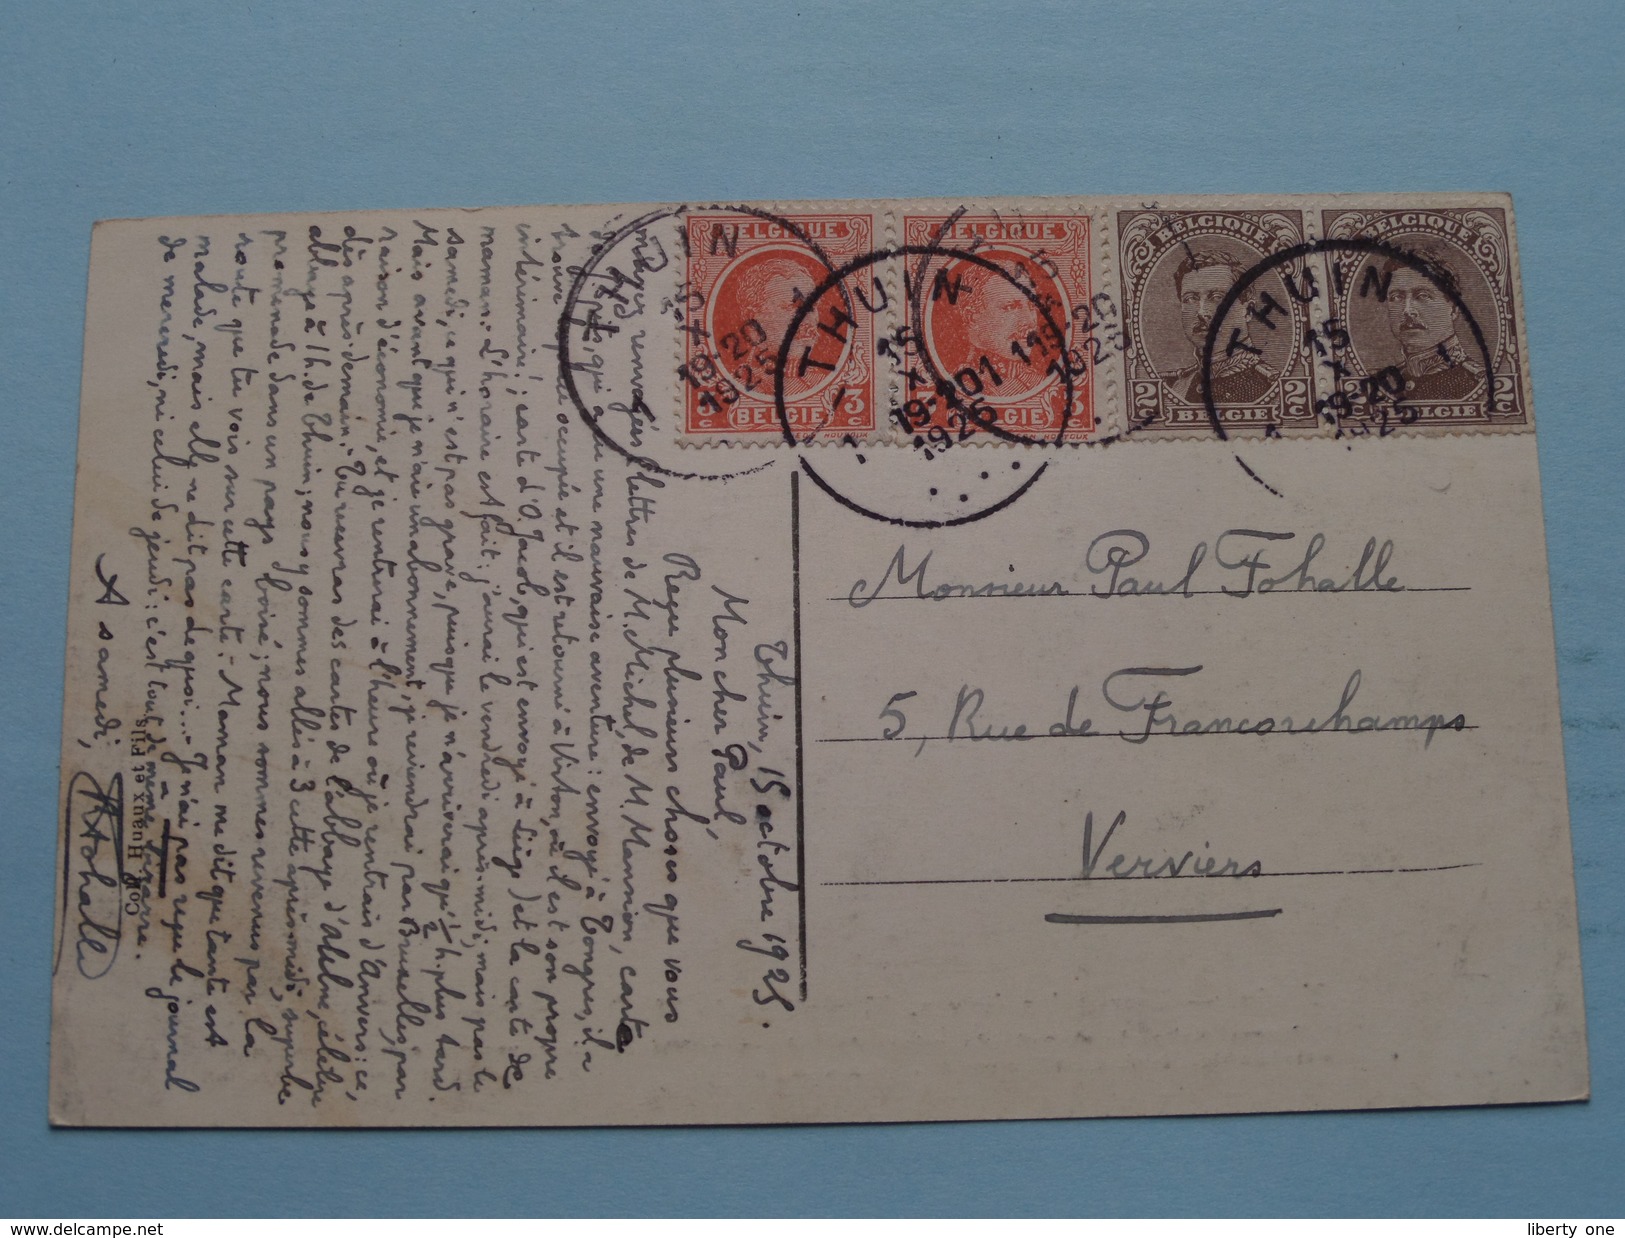 Thuin, 15 octobre 1925.
Mon cher Paul,
Reçu plusieurs choses que vous
m'avez renvoyées: lettres de M. Michel, de M. Mansion, carte
de qui a eu une mauvaise aventure: envoyé à Tongres, il a
trouvé place occupée et il est retourné à Virton, où il est son propre
intérimaire!; carte d'O. Jacob, qui est envoyé à Liège) et la carte de
maman. L'horaire est fait: j'aurai le vendredi après-midi, mais pas le
samedi, ce qui n'est pas grave, puisque je n'arriverai qu'½ h. plus tard.
Mais avant que je n'aie un abonnement, je reviendrai par Bruxelles, par
raison d'économie, et je rentrerai à l'heure où je rentrais d'Anvers: ce,
dès après-demain. Tu recevras des cartes de l'abbaye d'Aulne, célèbre
abbaye à 1 h. de Thuin; nous y sommes allés à 3 cette après-midi, superbe
promenade dans un pays boisé; nous sommes revenus par la
route que tu vois sur cette carte. - Maman me dit que tante est
malade, mais elle ne dit pas de quoi... - Je n'ai pas reçu le journal
de mercredi, ni celui de jeudi: c'est tout de même bizarre.
A samedi,
AFohalle
Monsieur Paul Fohalle
5, Rue de Francorchamps
Verviers
BELGIQUE
BELGIË
3 c
BELGIQUE
BELGIË
BELGIQUE
2 c
BELGIË
2 c
BELGIQUE
BELGIË
2 c
THUIN
15 X
19-20
1925
THUIN
15 X
19-20
1925
Huaux et Fils
liberty one